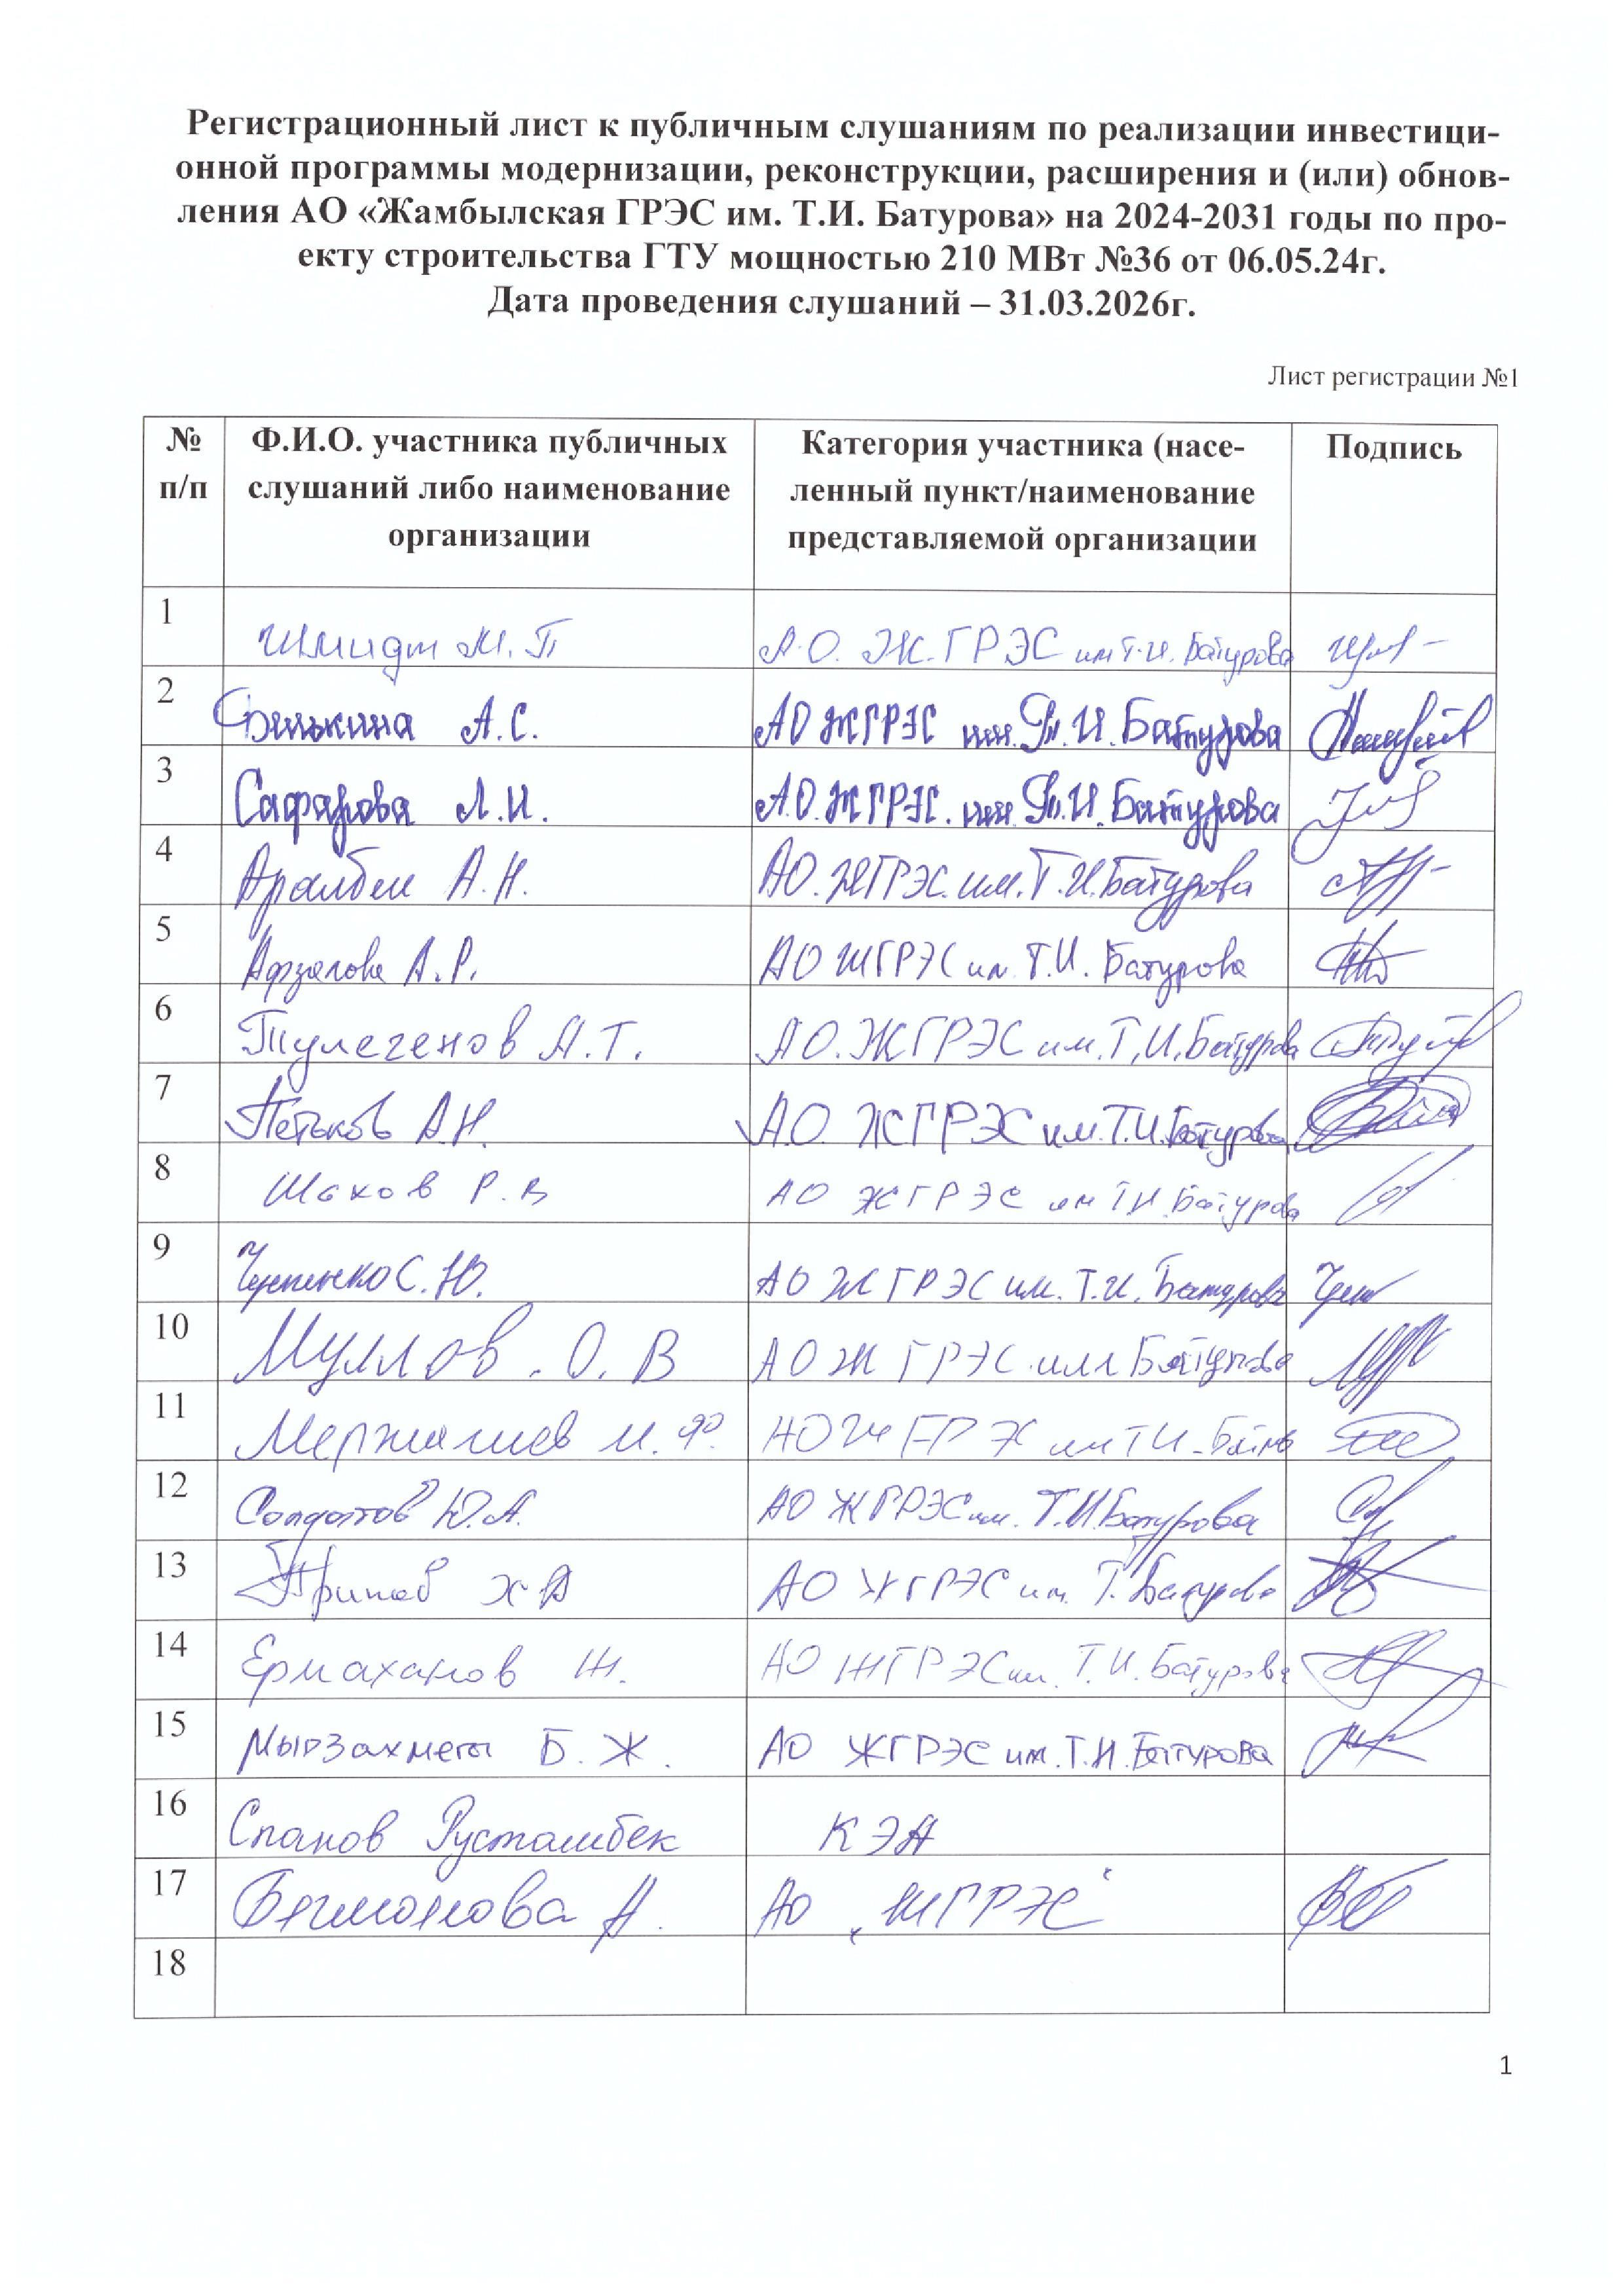 Регистрационный лист к публичным слушаниям по реализации инвестици-
онной программы модернизации, реконструкции, расширения и (или) обнов-
ления АО «Жамбылская ГРЭС им. Т.И. Батурова» на 2024-2031 годы по про-
екту строительства ГТУ мощностью 210 МВт №36 от 06.05.24г.
Дата проведения слушаний – 31.03.2026г.
Лист регистрации №1
№ п/п Ф.И.О. участника публичных слушаний либо наименование организации Категория участника (насе-ленный пункт/наименование представляемой организации Подпись
1 Шмидт М.П А.О. Ж.ГРЭС им Т.И. Батурова
2 А.С. АО ЖГРЭС им. Т.И. Батурова
3 Сафарова Л.И. А.О. ЖГРЭС. им. Т.И. Батурова
4 А.Н. АО. ЖГРЭС. им. Т.И. Батурова
5 Афзалова А.Р. АО ЖГРЭС им. Т.И. Батурова
6 Тулегенов А.Т. АО. ЖГРЭС им. Т.И. Батурова
7 Петьков А.Н. А.О. ЖГРЭС им. Т.И. Батурова
8 Шахов Р.В АО ЖГРЭС им Т.И. Батурова
9 С.Ю. АО ЖГРЭС им. Т.И. Батурова
10 Муллов. О.В АО ЖГРЭС им Батурова
11 И.Ф. АО ЖГРЭС им Т И
12 Солдатов Ю.А. АО ЖГРЭС им. Т.И. Батурова
13 Х АО ЖГРЭС им. Т. Батурова
14 Ермаханов Ж. АО ЖГРЭС им. Т.И. Батурова
15 Мырзахмет Б.Ж. АО ЖГРЭС им. Т.И. Батурова
16 Спанов Рустамбек КЭА
17 А. АО „ЖГРЭС“
18
1